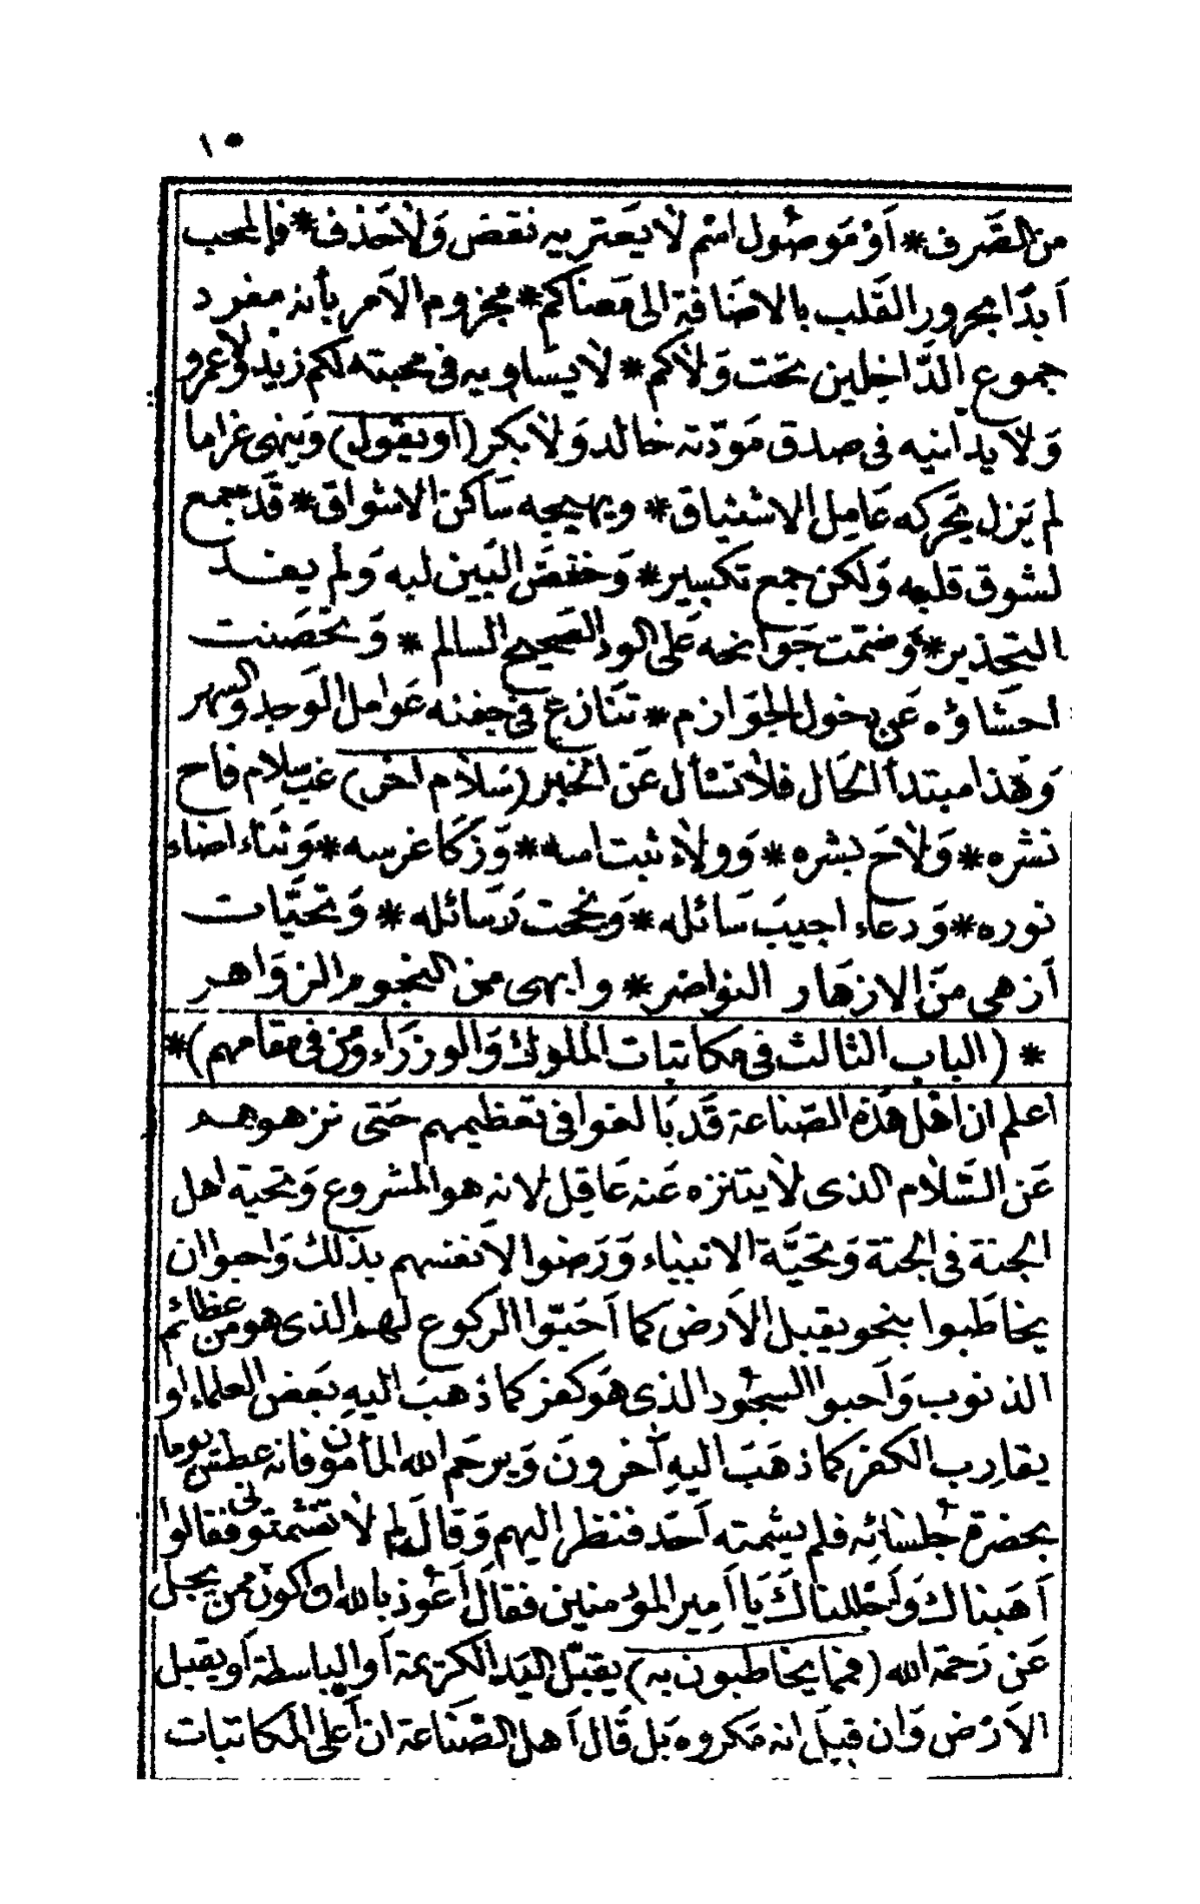 ١٥
من الصَّرف * أَوْ مَوصُول اسْم لا يَعتريه نقص وَلَا حَذف * فالمحب
أبدًا مجرور القَلب بالاضَافة الى مَصناكم * مجزوم الأمر بأنه مفرد
جموع الدَّاخِلين تحت وَلاكم * لا يساويه فى محبته لكم زيد ولا عمرو
وَلَا يدانيه فى صدق مَودّته خالد وَلَا بكر (أو يقول) وَينهى غراما
لم يَزل يحَركه عَامِل الاشتياق * ويهيجه سَاكن الاشواق * قَد جمع
لشوق قلبه وَلكن جمع تكسير * وَخفض البَين لبه وَلم يفد
التحذير * وَضمّت جَوانحه عَلى الود الصحيح السالم * وَتحصَنت
احشَاؤه عَن دخول الجوَازم * تنَازع فى جفنه عَوامل الوَجد والسهر
وَهَذا مبتدأ الحَال فلا تسْأل عَن الخبر (سَلام آخر) غب سلام فاح
نشره * وَلَاحَ بشره * وَولَاء ثبت اسه * وَزكَا غرسه * وَثنَاء اضاء
نوره * وَدعَاء اجيبَ سَائله * وَنجحت رَسَائله * وَتحيَّات
أزهى مِنَ الازهَار النواضر * وابهى من النجوم الزوَاهر
* (الباب الثالث فى مكاتبات الملوك وَالوزرَاء وَمن فى مقامهم) *
اعلم ان اهْل هَذه الصّناعة قَد بَالغوا فى تعَظيمهم حَتى نزهوهم
عَن السَّلام الذى لا يتنزه عَنه عَاقِل لانه هو المشروع وَتحية اهل
الجنة فى الجنة وَتحيَّة الانبياء وَرَضوا لأنفسهم بذلك وَاحبوا ان
يخاطَبوا بنحو يقبل الأرض كما أَحَبّوا الركوع لهم الذى هو من عظائم
الذنوب وَأَحبوا السجُود الذى هوَ كفر كما ذهبَ اليهِ بَعض العلماء او
يقارب الكفر كما ذهَبَ اليهِ آخرونَ وَيرحَم الله المأمون فانه عطش يوما
بحضرة جُلسَائه فلم يشمته أَحَد فنظر اليهم وَقال لم لا تشمتونى فقالوا
أَهَبناك وَأَجْللناكَ يَا أَمِير المؤمنين فقال أَعُوذ بالله ان اكون ممن يجل
عَن رَحمة الله (فمما يخاطبون به) يقبّل اليَد الكريمة أو الباسطة أو يقبل
الأرض وَان قيلَ انه مَكروه بَل قَال أهل الصّنَاعة ان أَعلى المكاتبات